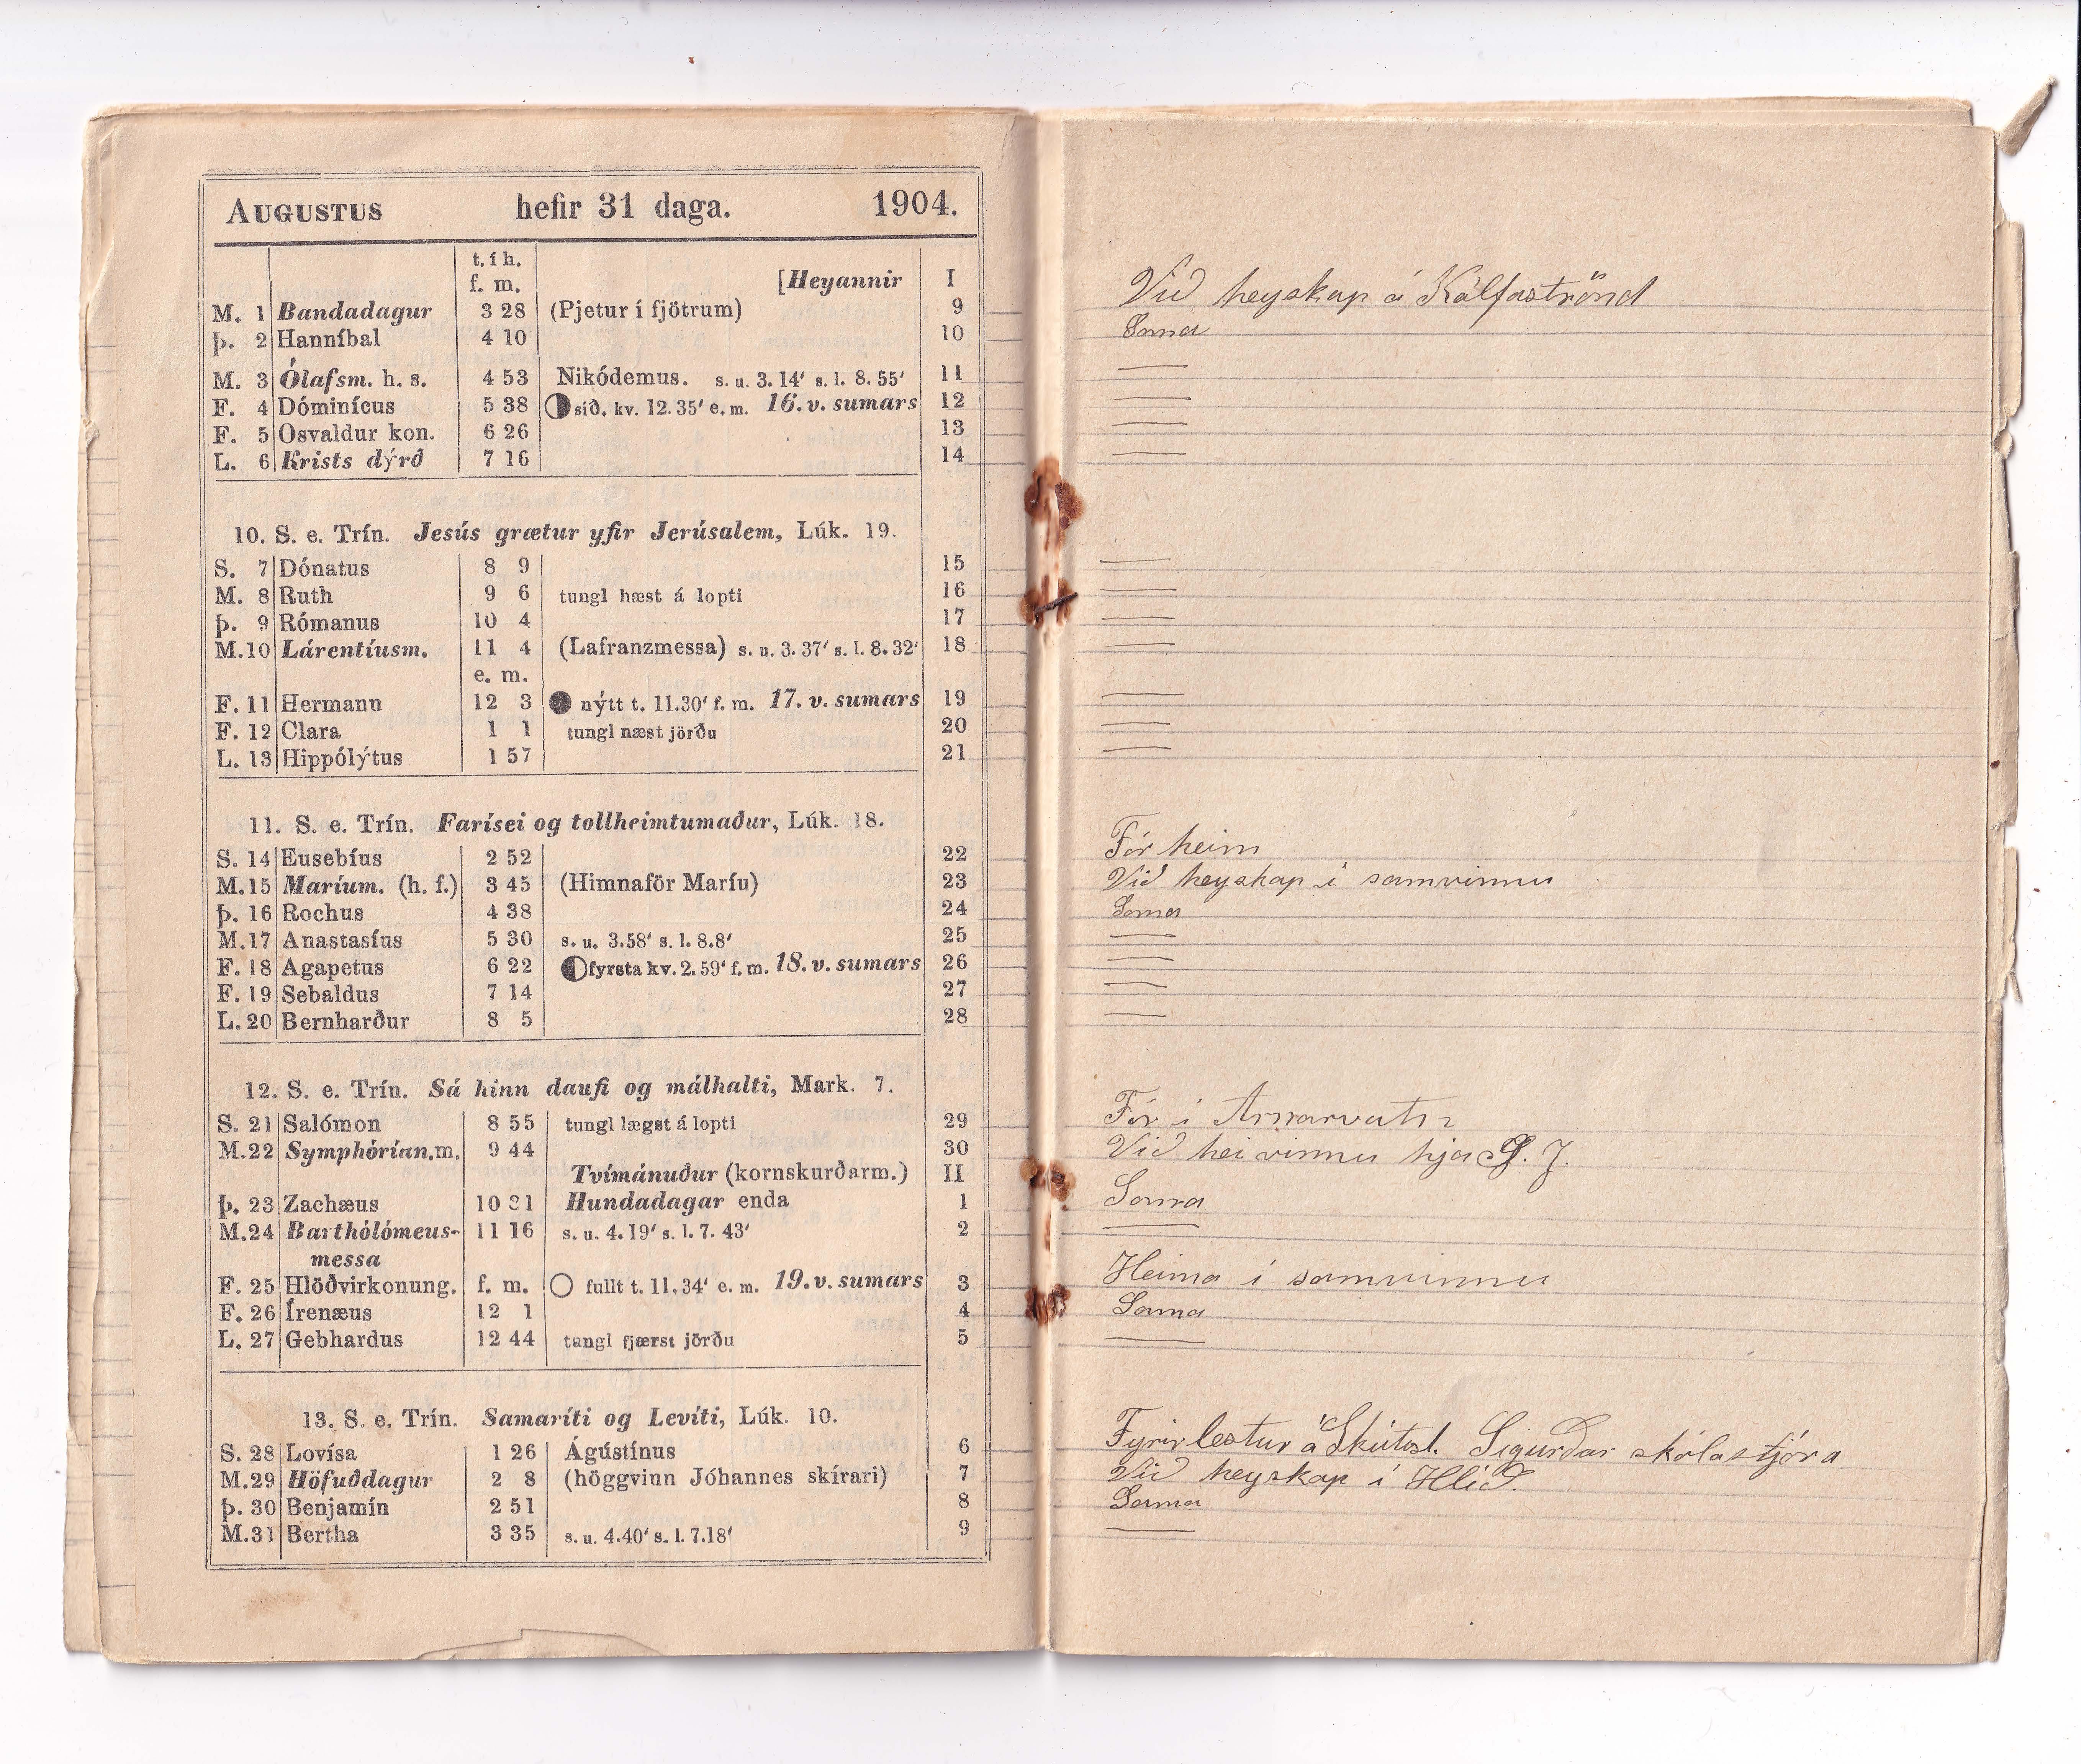 Augustus hefir 31 daga. 1904.
t. í h.
f. m. [Heyannir I
M. 1 Bandadagur 3 28 (Pjetur í fjötrum) 9
Þ. 2 Hanníbal 4 10 10
M. 3 Ólafsm. h. s. 4 53 Nikódemus. s. u. 3. 14' s. l. 8. 55' 11
F. 4 Dóminícus 5 38 síð. kv. 12. 35' e. m. 16. v. sumars 12
F. 5 Osvaldur kon. 6 26 13
L. 6 Krists dýrð 7 16 14
10. S. e. Trín. Jesús grætur yfir Jerúsalem, Lúk. 19.
S. 7 Dónatus 8 9 15
M. 8 Ruth 9 6 tungl hæst á lopti 16
Þ. 9 Rómanus 10 4 17
M. 10 Lárentíusm. 11 4 (Lafranzmessa) s. u. 3. 37' s. l. 8. 32' 18
e. m.
F. 11 Hermann 12 3 nýtt t. 11.30' f. m. 17. v. sumars 19
F. 12 Clara 1 1 tungl næst jörðu 20
L. 13 Hippólýtus 1 57 21
11. S. e. Trín. Farísei og tollheimtumaður, Lúk. 18.
S. 14 Eusebíus 2 52 22
M. 15 Maríum. (h. f.) 3 45 (Himnaför Maríu) 23
Þ. 16 Rochus 4 38 24
M. 17 Anastasíus 5 30 s. u. 3.58' s. l. 8.8' 25
F. 18 Agapetus 6 22 fyrsta kv. 2. 59' f. m. 18. v. sumars 26
F. 19 Sebaldus 7 14 27
L. 20 Bernharður 8 5 28
12. S. e. Trín. Sá hinn daufi og málhalti, Mark. 7.
S. 21 Salómon 8 55 tungl lægst á lopti 29
M. 22 Symphórían.m. 9 44 30
Tvímánuður (kornskurðarm.) II
Þ. 23 Zachæus 10 31 Hundadagar enda 1
M. 24 Barthólómeus- 11 16 s. u. 4. 19' s. l. 7. 43' 2
messa
F. 25 Hlöðvirkonung. f. m. fullt t. 11.34' e. m. 19. v. sumars 3
F. 26 Írenæus 12 1 4
L. 27 Gebhardus 12 44 tungl fjærst jörðu 5
13. S. e. Trín. Samaríti og Levíti, Lúk. 10.
S. 28 Lovísa 1 26 Ágústínus 6
M. 29 Höfuðdagur 2 8 (höggvinn Jóhannes skírari) 7
Þ. 30 Benjamín 2 51 8
M. 31 Bertha 3 35 s. u. 4.40' s. l. 7.18' 9
Við heyskap á Kálfaströnd
Sama
Fór heim
Við heyskap í samvinnu
Sama
Fór í Arnarvatn
Við heivinnu hja S. J.
Sama
Heima í samvinnu
Sama
Fyrirlestur á Skútust. Sigurðar skólastjóra
Við heyskap í Hlíð.
Sama